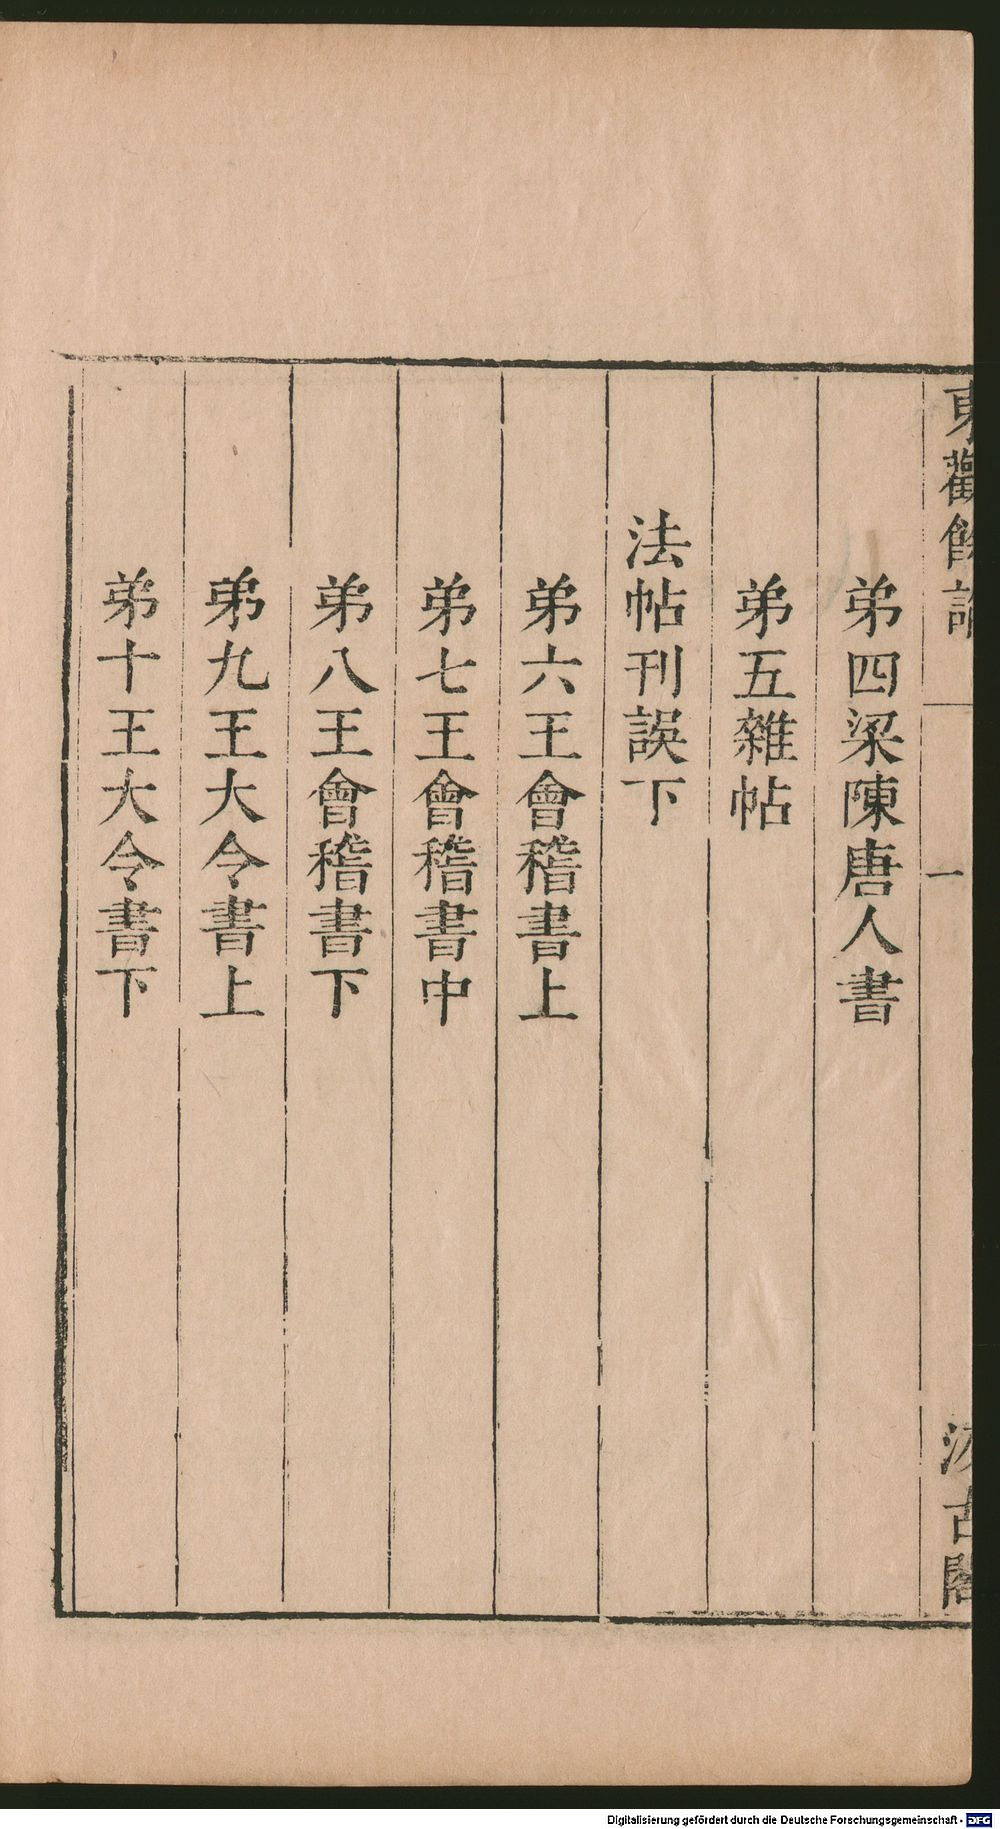 東觀餘論
一
汲古閣
弟四梁陳唐人書
弟五雜帖
法帖刊誤下
弟六王會稽書上
弟七王會稽書中
弟八王會稽書下
弟九王大令書上
弟十王大令書下
Digitalisierung gefördert durch die Deutsche Forschungsgemeinschaft - DFG